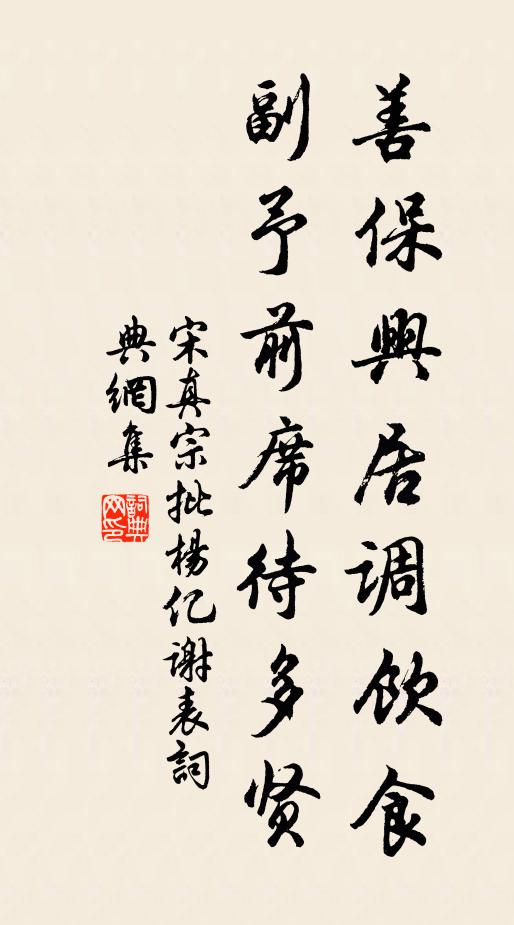 善保興居调飲食
副予前席待多贤
宋真宗批楊億謝表詞
典網集
詞典网印